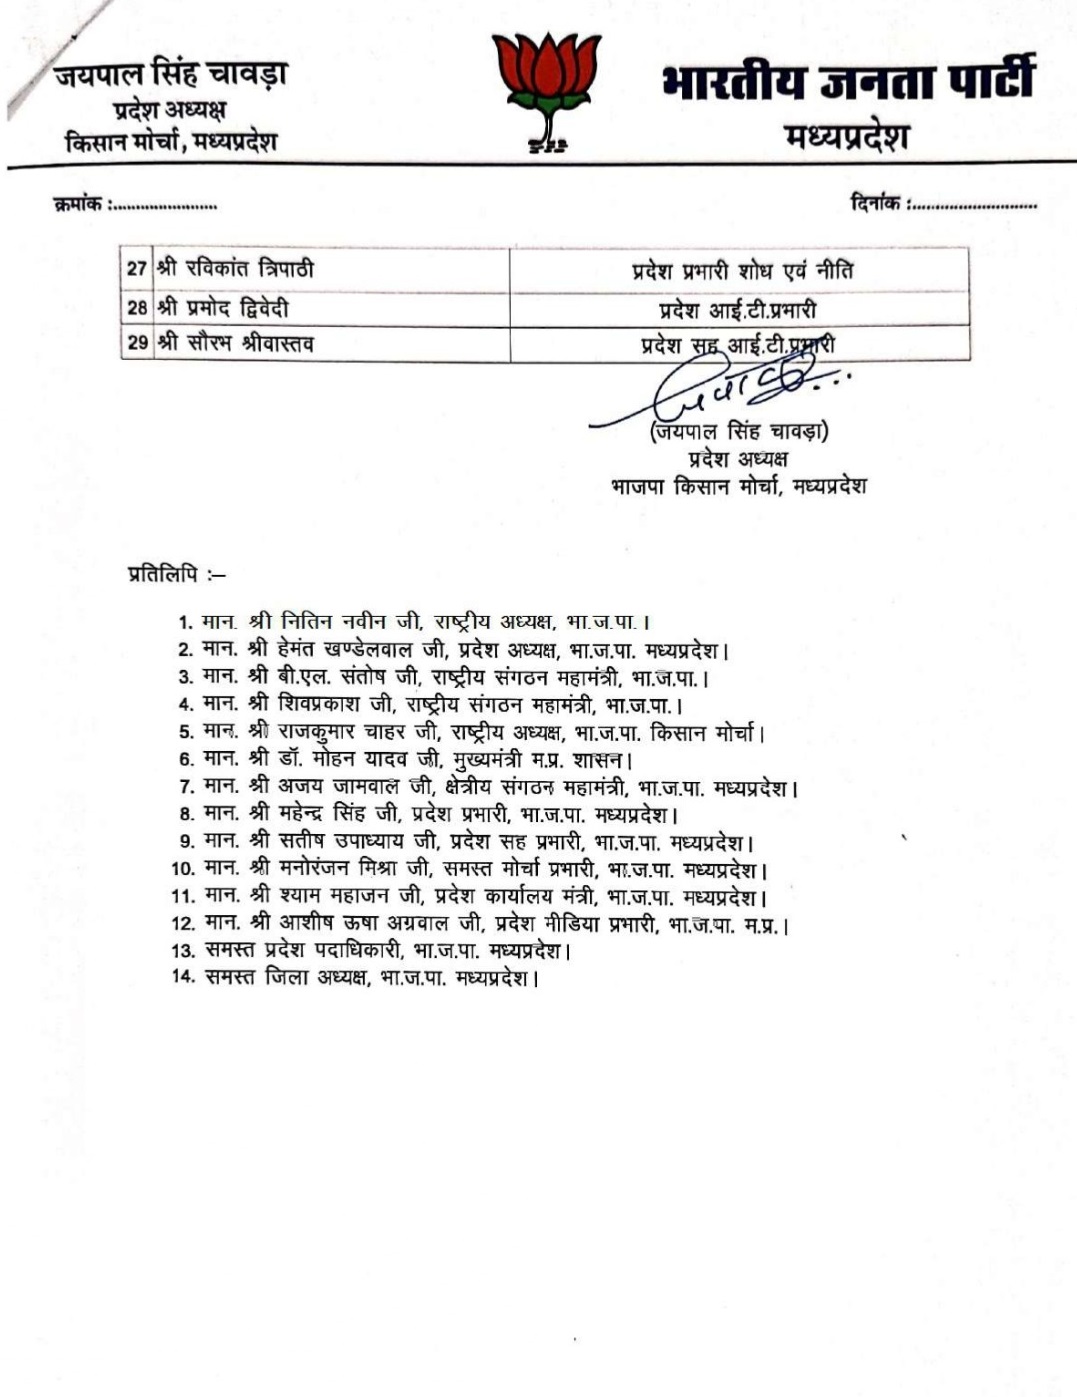 जयपाल सिंह चावड़ा
प्रदेश अध्यक्ष
किसान मोर्चा, मध्यप्रदेश
भारतीय जनता पार्टी
मध्यप्रदेश
क्रमांक :.......................
दिनांक :............................
27 श्री रविकांत त्रिपाठी प्रदेश प्रभारी शोध एवं नीति
28 श्री प्रमोद द्विवेदी प्रदेश आई.टी.प्रभारी
29 श्री सौरभ श्रीवास्तव प्रदेश सह आई.टी.प्रभारी
(जयपाल सिंह चावड़ा)
प्रदेश अध्यक्ष
भाजपा किसान मोर्चा, मध्यप्रदेश
प्रतिलिपि :–
1. मान. श्री नितिन नवीन जी, राष्ट्रीय अध्यक्ष, भा.ज.पा.।
2. मान. श्री हेमंत खण्डेलवाल जी, प्रदेश अध्यक्ष, भा.ज.पा. मध्यप्रदेश।
3. मान. श्री बी.एल. संतोष जी, राष्ट्रीय संगठन महामंत्री, भा.ज.पा.।
4. मान. श्री शिवप्रकाश जी, राष्ट्रीय संगठन महामंत्री, भा.ज.पा.।
5. मान. श्री राजकुमार चाहर जी, राष्ट्रीय अध्यक्ष, भा.ज.पा. किसान मोर्चा।
6. मान. श्री डॉ. मोहन यादव जी, मुख्यमंत्री म.प्र. शासन।
7. मान. श्री अजय जामवाल जी, क्षेत्रीय संगठन महामंत्री, भा.ज.पा. मध्यप्रदेश।
8. मान. श्री महेन्द्र सिंह जी, प्रदेश प्रभारी, भा.ज.पा. मध्यप्रदेश।
9. मान. श्री सतीष उपाध्याय जी, प्रदेश सह प्रभारी, भा.ज.पा. मध्यप्रदेश।
10. मान. श्री मनोरंजन मिश्रा जी, समस्त मोर्चा प्रभारी, भा.ज.पा. मध्यप्रदेश।
11. मान. श्री श्याम महाजन जी, प्रदेश कार्यालय मंत्री, भा.ज.पा. मध्यप्रदेश।
12. मान. श्री आशीष ऊषा अग्रवाल जी, प्रदेश मीडिया प्रभारी, भा.ज.पा. म.प्र.।
13. समस्त प्रदेश पदाधिकारी, भा.ज.पा. मध्यप्रदेश।
14. समस्त जिला अध्यक्ष, भा.ज.पा. मध्यप्रदेश।